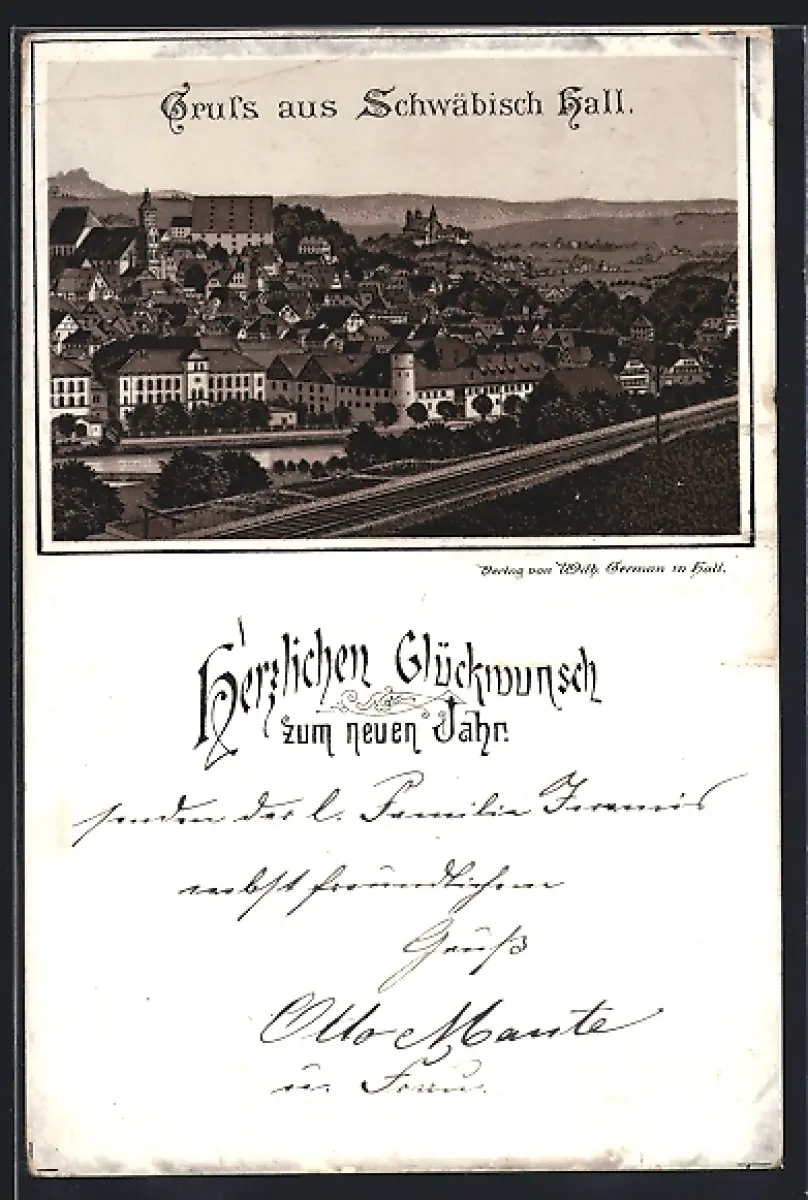 Gruſs aus Schwäbisch Hall.
Verlag von Wilh. German in Hall.
Herzlichen Glückwunsch
zum neuen Jahr.
senden der l. Familie
nebst freundlichem
Gruß
Otto Mante
u. Frau.